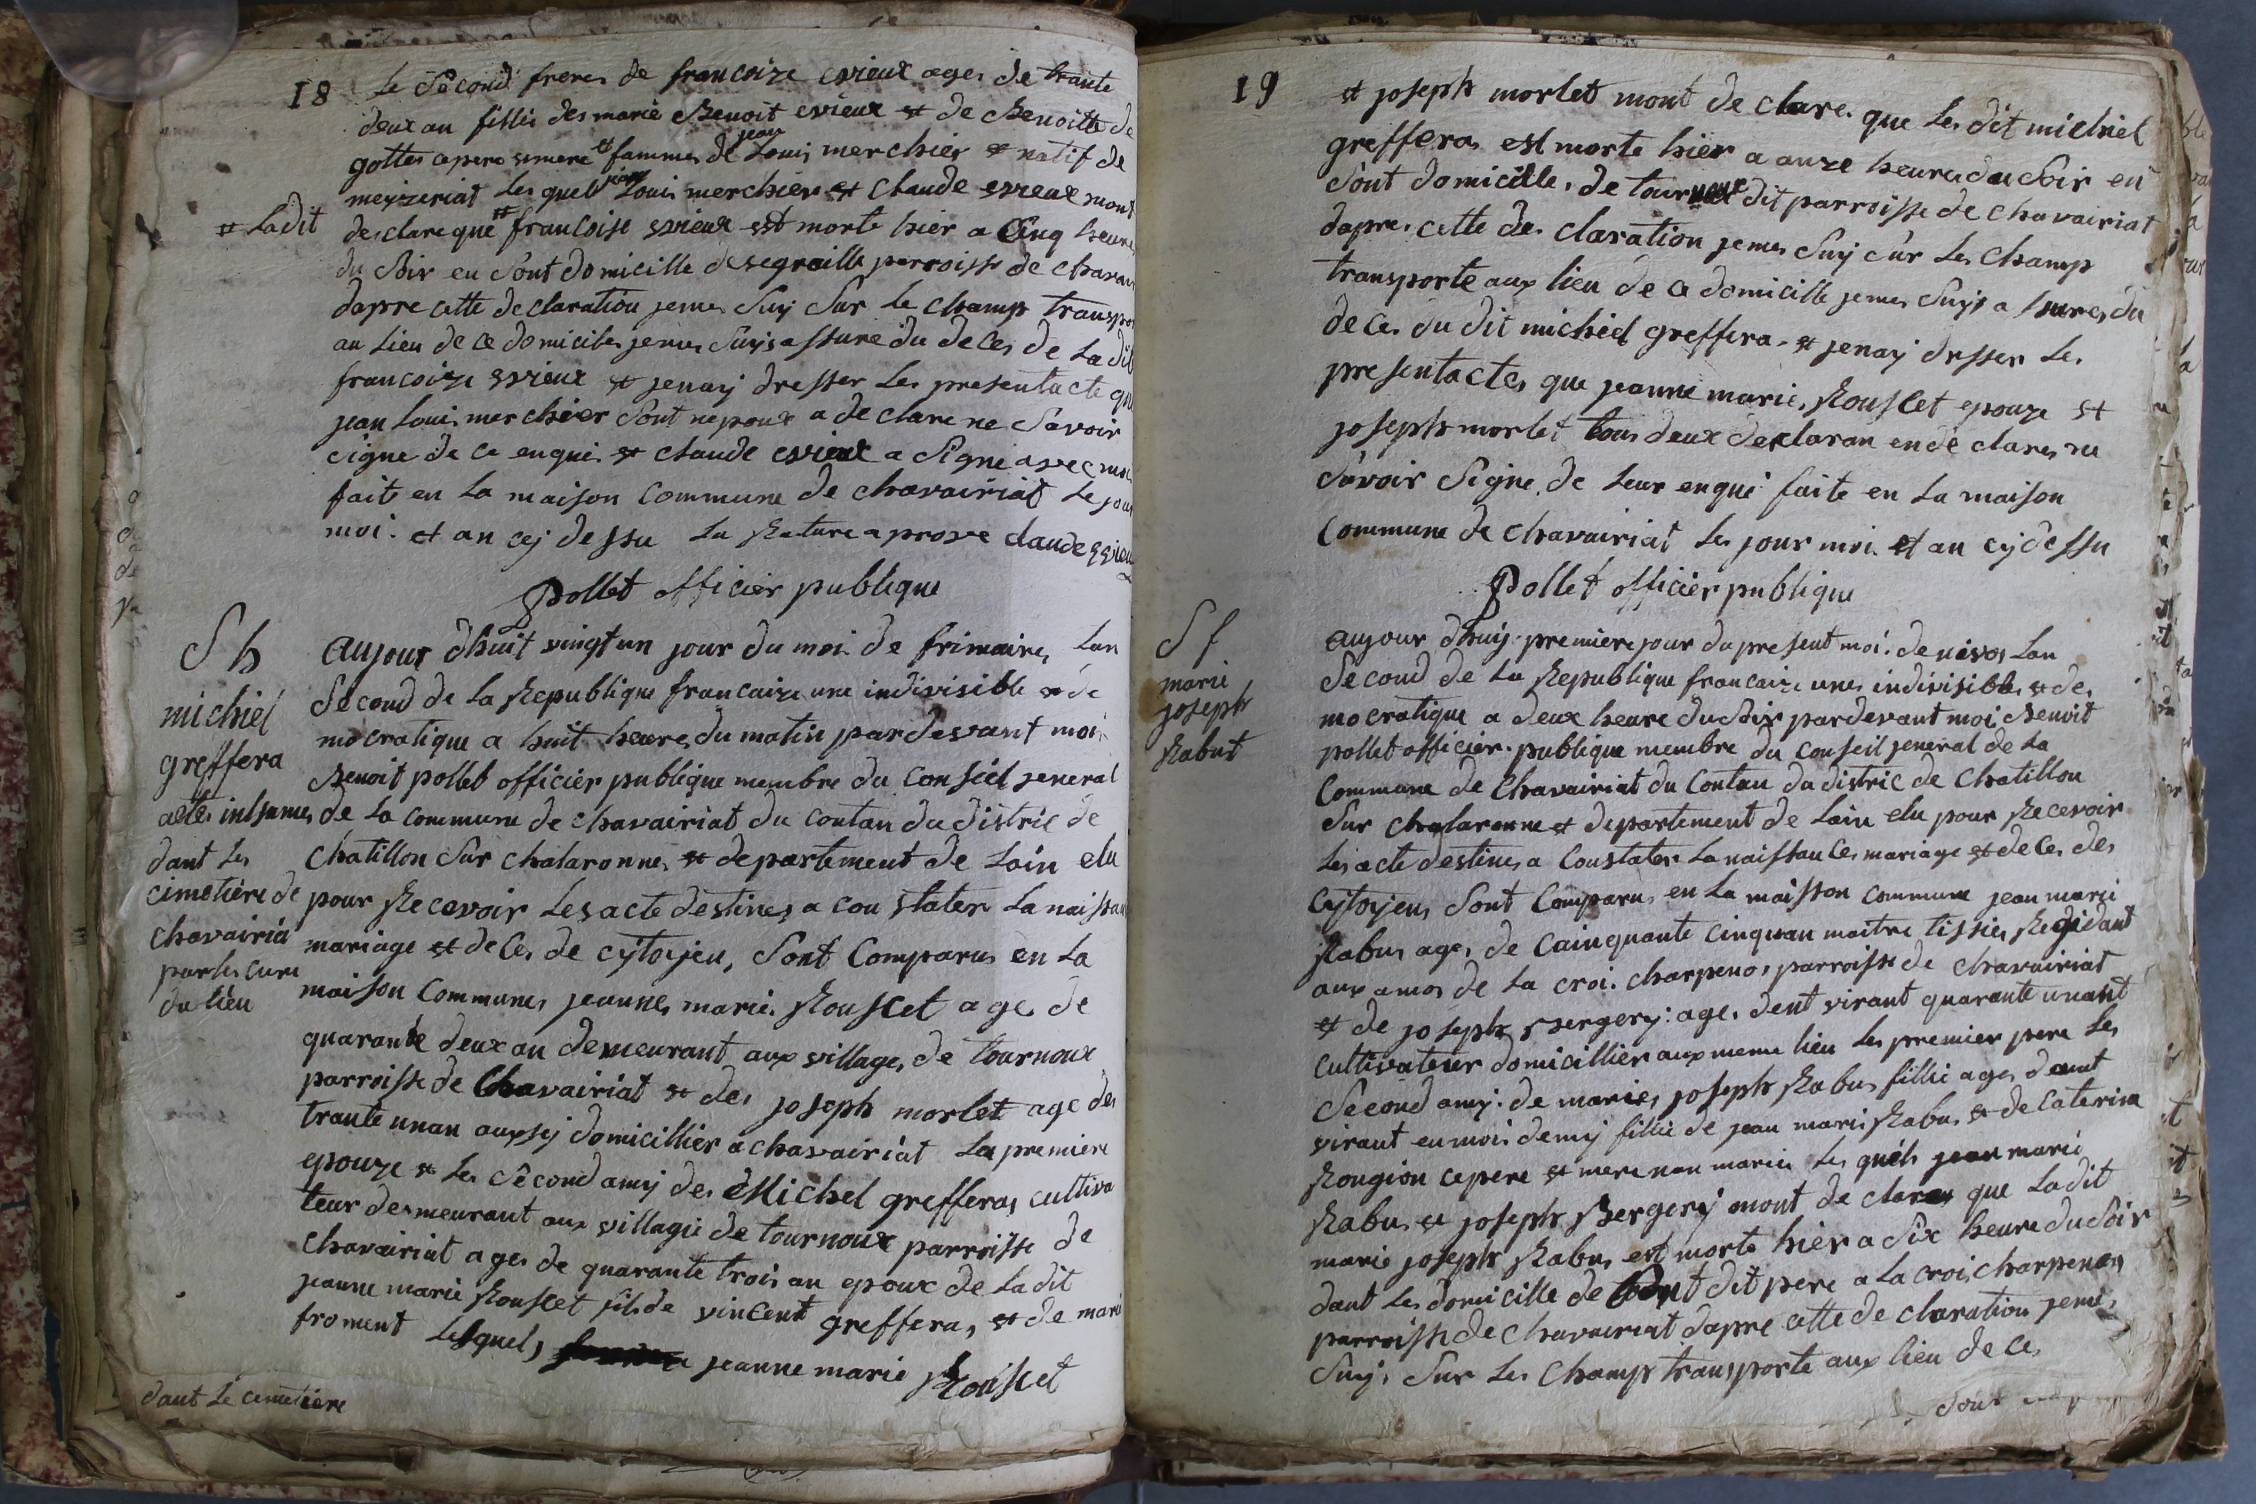 18
Le second freres de francoize evieux ages de trante
deux an fillie des marie Benoit evieux et de Benoitte de
gottes cepere et mere et fammes de jean Louis merchier et natif de
meyzeriat les quel jean Louis merchier et Claude evieux mont
# Ladit
des clare que # francoise evieux est morte hier a Cinq heures
du Soir en Sont domicille desegraille parroisse de chavair
dapre cette declaration jemes Suy Sur le champ transpor
au Lieu de ce domiciles jemes Suys assure du deces de La dit
francoize evieux et jenay dresser Les presentacte que
jean Louis merchier Sont nepoux a de clare ne Savoir
Signe de ce enquis et claude evieux a Signe avec moi
faite en La maison commune de chavairiat Le jour
moi et an cy dessu La Rature aprove claude evieu
Pollet officier publique
S h
michiel
greffera
actes inhumes
dant Les
cimetiere de
chavairia
par les cure
du lieu
Aujour dhuit vingt un jour du moi de frimaires Lan
Second de La Republique francaize une indivisible et de
mocratique a huit heures du matin pardevant moi
Benoit pollet officier publique membre du Consiel jeneral
de La commune de chavairiat du contan du distric de
chatillon Sur chalaronnes et departement de Lain elu
pour Recevoir Les acte destines a constater La naissan
mariage et deces de cytoyien, Sont Comparus en La
maison communes jeannes marie Rouscet ages de
quarante deux an demeurant aux village de tournoux
parroisse de Chavairiat et des joseph morlet age des
trante unan aussy domicillier a chavairiat La premiere
epouze et Les Second amy des Michel grefferas cultiva
teur desmeurant aux villagie de tournoux parroisse de
Chavairiat ages de quarante trois an epoux de La dit
jeanne marie Rouscet fils de vincent grefferas et de mari
froment Lesquels jeanne marie Rouscet
dant Le cimetiere
19
et joseph morlet mont de clare que Les dit michiel
grefferas est morte hier a anze heures du Soir en
Sont domicille de tournoux dit parroisse de chavairiat
dapres cette des claration jemes Suy Sur Les champ
transporte aux lieu de ce domicille jemes Suys a sures du
deces du dit michiel grefferas et jenay dresser Les
presentactes que jeanne marie Rouscet epouze et
joseph morlet tous deux desclaran en de clares ne
Savoir Signe de Leur enqui faite en La maison
commune de chavairiat Les jour moi et an cy dessu
Pollet officier publique
S f
marie
joseph
Rabut
aujour dhuy premiere jour du present moi de nivos Lan
Second de La Republique francaize unes indivisibles et des
mocratique a deux heure du Soir pardevant moi Benoit
pollet officier publique membre du conseil jeneral de La
Commune de Chavairiat du contan du distric de Chatillon
Sur chalaronne et departement de Lain elu pour Recevoir
Les acte destines a Constater La naissances mariage et deces des
Cytoyiens Sont Comparus en La maisson commune jean marie
Rabus ages de Cainquante cinquan maitre tissier Residant
aux amos de La croi charpenos parroisse de chavairiat
et de joseph Bergery ages dent virant quarante unant
cultivateur domicillier aux meme lieu Les premier pere Les
Second amy de maries joseph Rabus fillie ages dant
virant en moi demy fillie de jean marie Rabus et de Caterine
Rougion cepere et mere non maries Les quels jean marie
Rabus et joseph Bergery mont de clares que Ladit
marie joseph Rabus est morte hier a Six heure du Soir
dant Les domicille de Sont dit pere a La croi charpenos
parroisse de chavaireat dapre cette de claration jemes
Suys Sur Les champ transporte aux lieu de ce